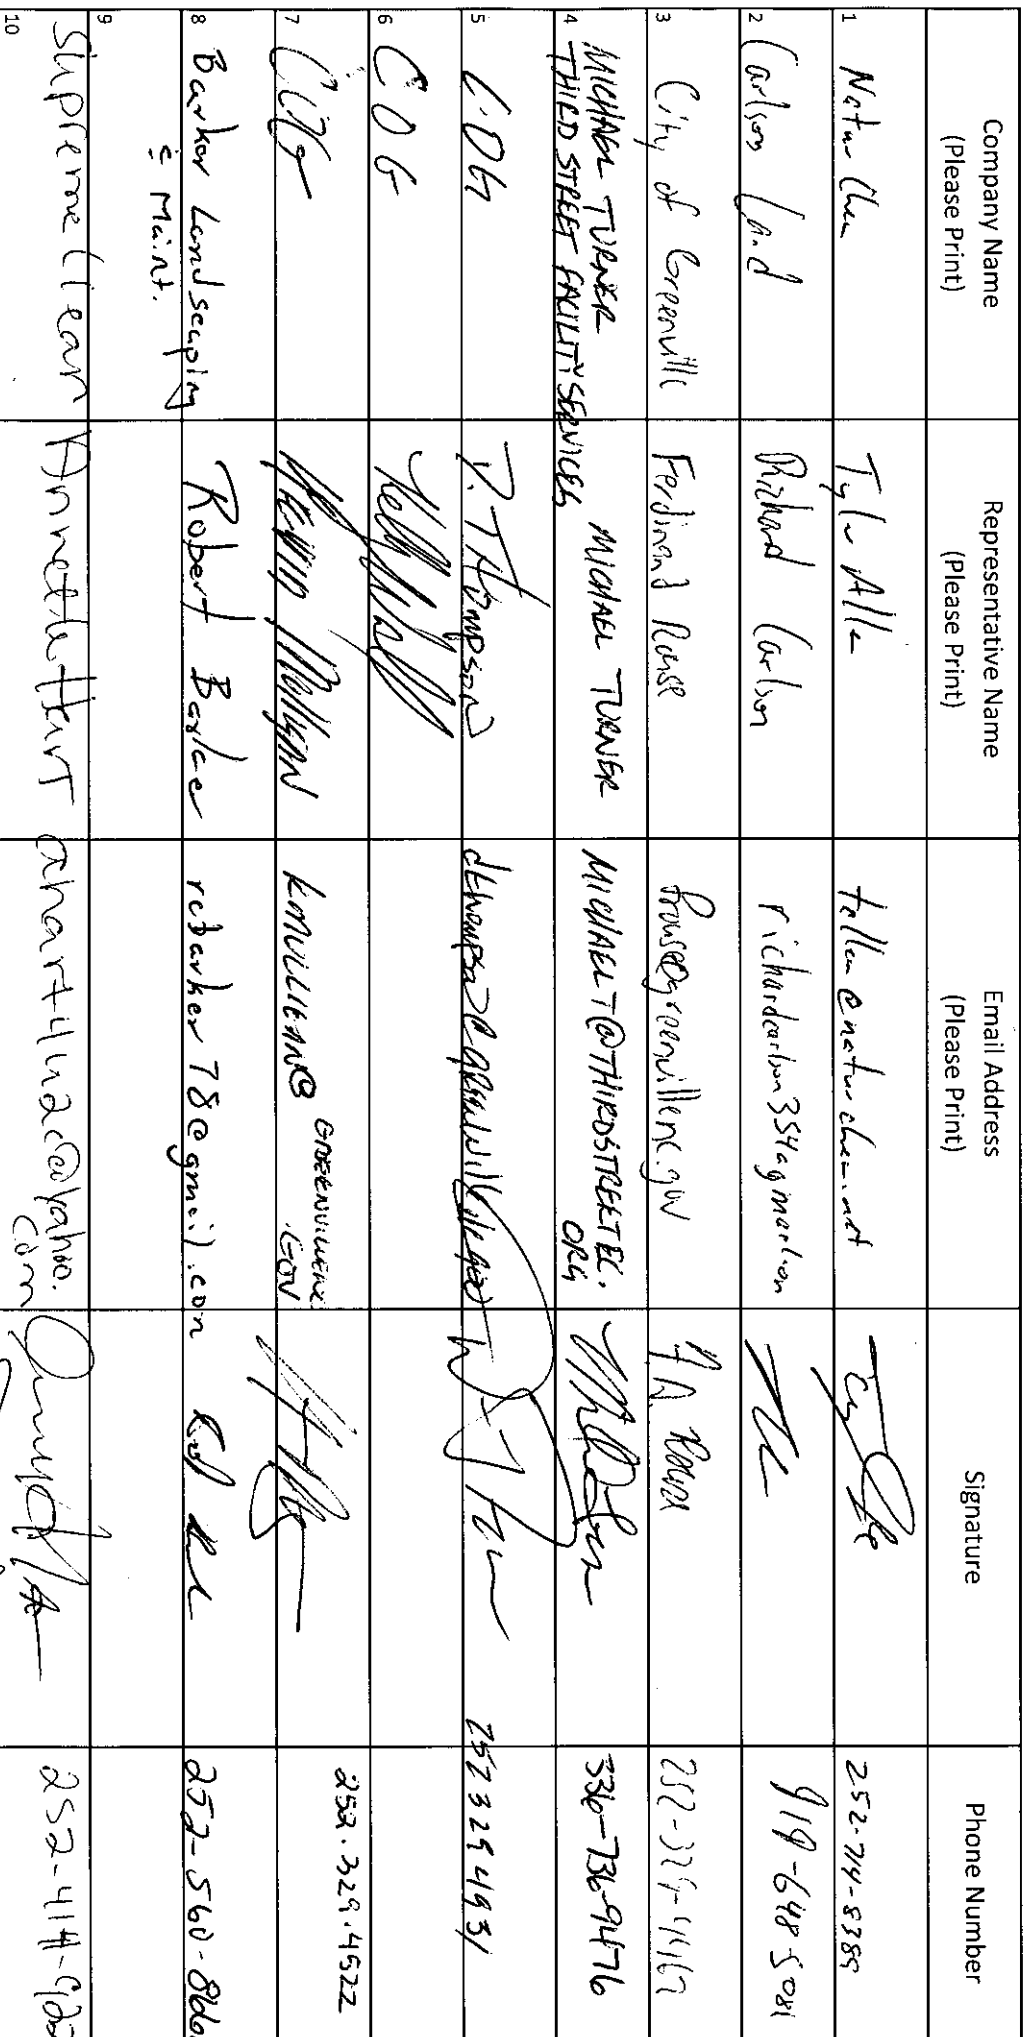 Company Name (Please Print) Representative Name (Please Print) Email Address (Please Print) Signature Phone Number
1 Natur Chem Tyler Allen tallen@naturchem.net 252-714-8389
2 Carlson Land Richard Carlson 919-648-5081
3 City of Greenville Ferdinand Rouse frouse@greenvillenc.gov
4 MICHAEL TURNER
THIRD STREET FACILITY SERVICES MICHAEL TURNER MICHAELT@THIRDSTREETEC.ORG 336-736-9476
5 COG D. Thompson 252 329 4931
6 COG
7 COG Kevin Mulligan KMULLIGAN@GREENVILLENC.GOV 252.329.4522
8 Barker Landscaping & Maint. Robert Barker rcbarker78@gmail.com 252-560-
9 Supreme Clean Annette Hart 252-414-
10